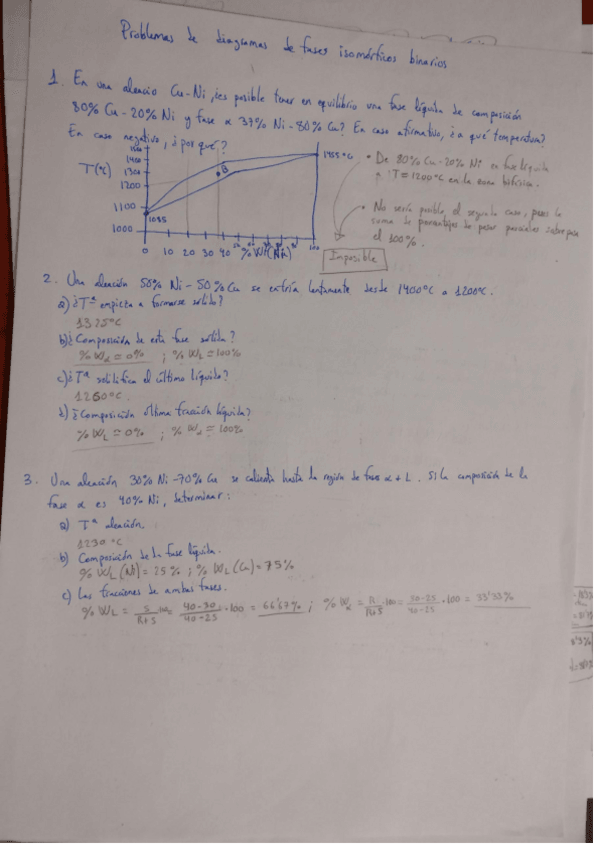 Problemas de diagramas de fases isomórficos binarios
1. En una aleacio Cu-Ni, ¿es posible tener en equilibrio una fase líquida de composición
80% Cu-20% Ni y fase α 37% Ni-80% Cu? En caso afirmativo, ¿a qué temperatura?
En caso negativo, ¿por qué?
T(ºc)
1400
1300
1200
1100
1000
1085
B
1455ºc
0 10 20 30 40 50 60 70 80 90 100
% Wt(Ni)
• De 80% Cu-20% Ni en fase líquida
a T=1200ºC en la zona bifásica.
• No sería posible el segundo caso, pues la
suma de porcentajes de pesos parciales sobrepasa
el 100%.
Imposible
2. Una aleación 50% Ni-50% Cu se enfría lentamente desde 1400ºC a 1200ºC.
a) ¿Tª empieza a formarse sólido?
1325ºC
b) ¿Composición de esta fase sólida?
% Wα = 0% ; % WL = 100%
c) ¿Tª solidifica el último líquido?
1260ºC.
d) ¿Composición última fracción líquida?
% WL = 0% ; % Wα = 100%
3. Una aleación 30% Ni-70% Cu se calienta hasta la región de fases α+L. Si la composición de la
fase α es 40% Ni, determinar:
a) Tª aleación.
1230 ºC
b) Composición de la fase líquida.
% WL (Ni) = 25% ; % WL (Cu) = 75%
c) Las fracciones de ambas fases.
% WL = S/R+S ·100 = 40-30/40-25 ·100 = 66'67% ; % Wα = R/R+S ·100 = 30-25/40-25 ·100 = 33'33%